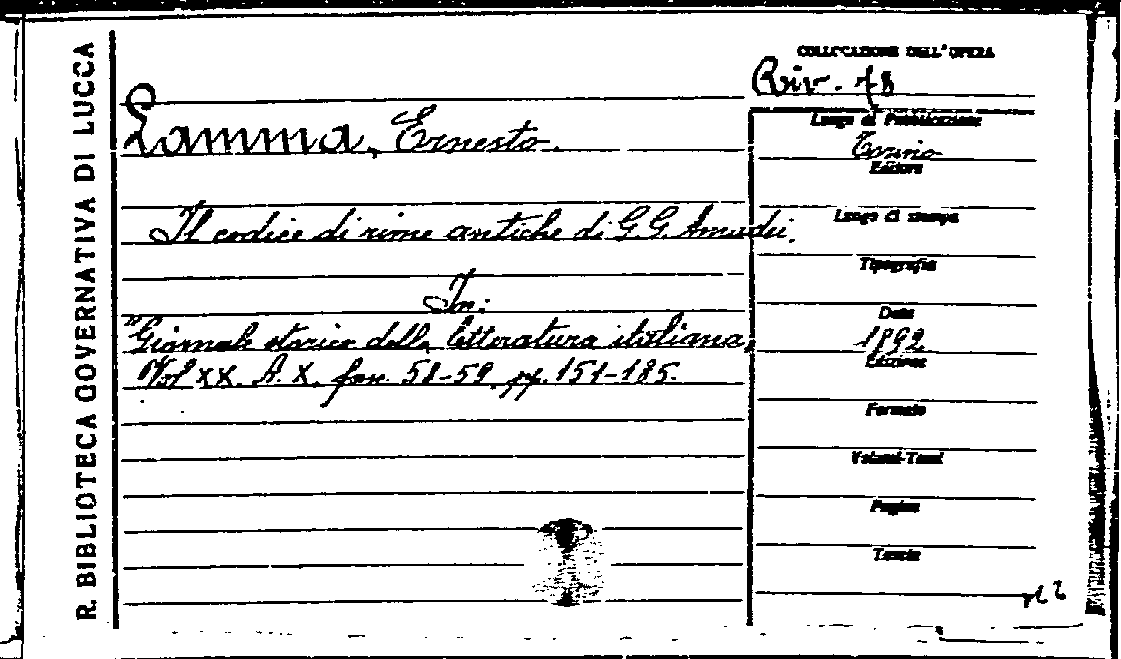 R. BIBLIOTECA GOVERNATIVA DI LUCCA
COLLOCAZIONE DELL'OPERA
Riv. 78
Lamma, Ernesto.
Luogo di Pubblicazione
Torino
Editore
Il codice di rime antiche di G. G. Amadei.
Luogo di stampa
Tipografia
In:
Data
"Giornale storico della letteratura italiana,
1892
Edizione
Vol XX. A. X. fasc. 58-59. pp. 151-185.
Formato
Volumi-Tomi
Pagine
Tavole